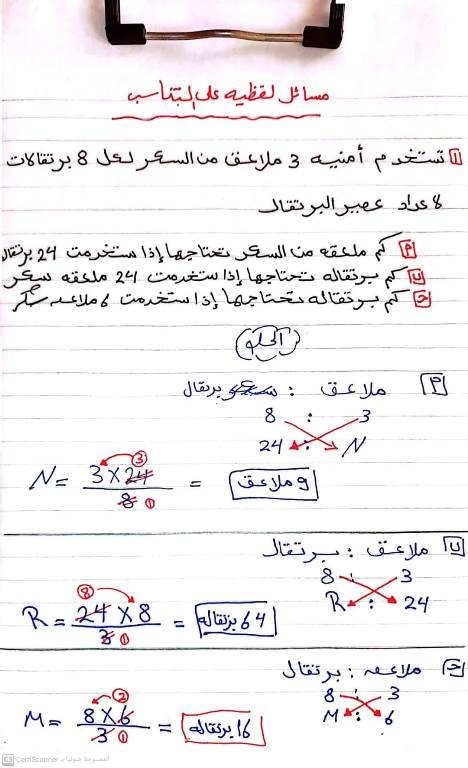 مسائل لفظيه على التناسب
١ تستخدم أمنيه 3 ملاعق من السكر لكل 8 برتقالات
لاعداد عصير البرتقال
أ كم ملعقه من السكر تحتاجها إذا ستخدمت 24 برتقاله
ب كم برتقاله تحتاجها إذا ستخدمت 24 ملعقه سكر
ج كم برتقاله تحتاجها إذا ستخدمت 6 ملاعق سكر
الحلو
أ ملاعق : برتقال
8 : 3
24 : N
N = 3 × 24 / 8 = 9 ملاعق
3
1
ب ملاعق : برتقال
8 : 3
R : 24
R = 24 × 8 / 3 = 64 برتقاله
8
1
ج ملاعق : برتقال
8 : 3
M : 6
M = 8 × 6 / 3 = 16 برتقاله
2
1
CS CamScanner الممسوحة ضوئيا بـ